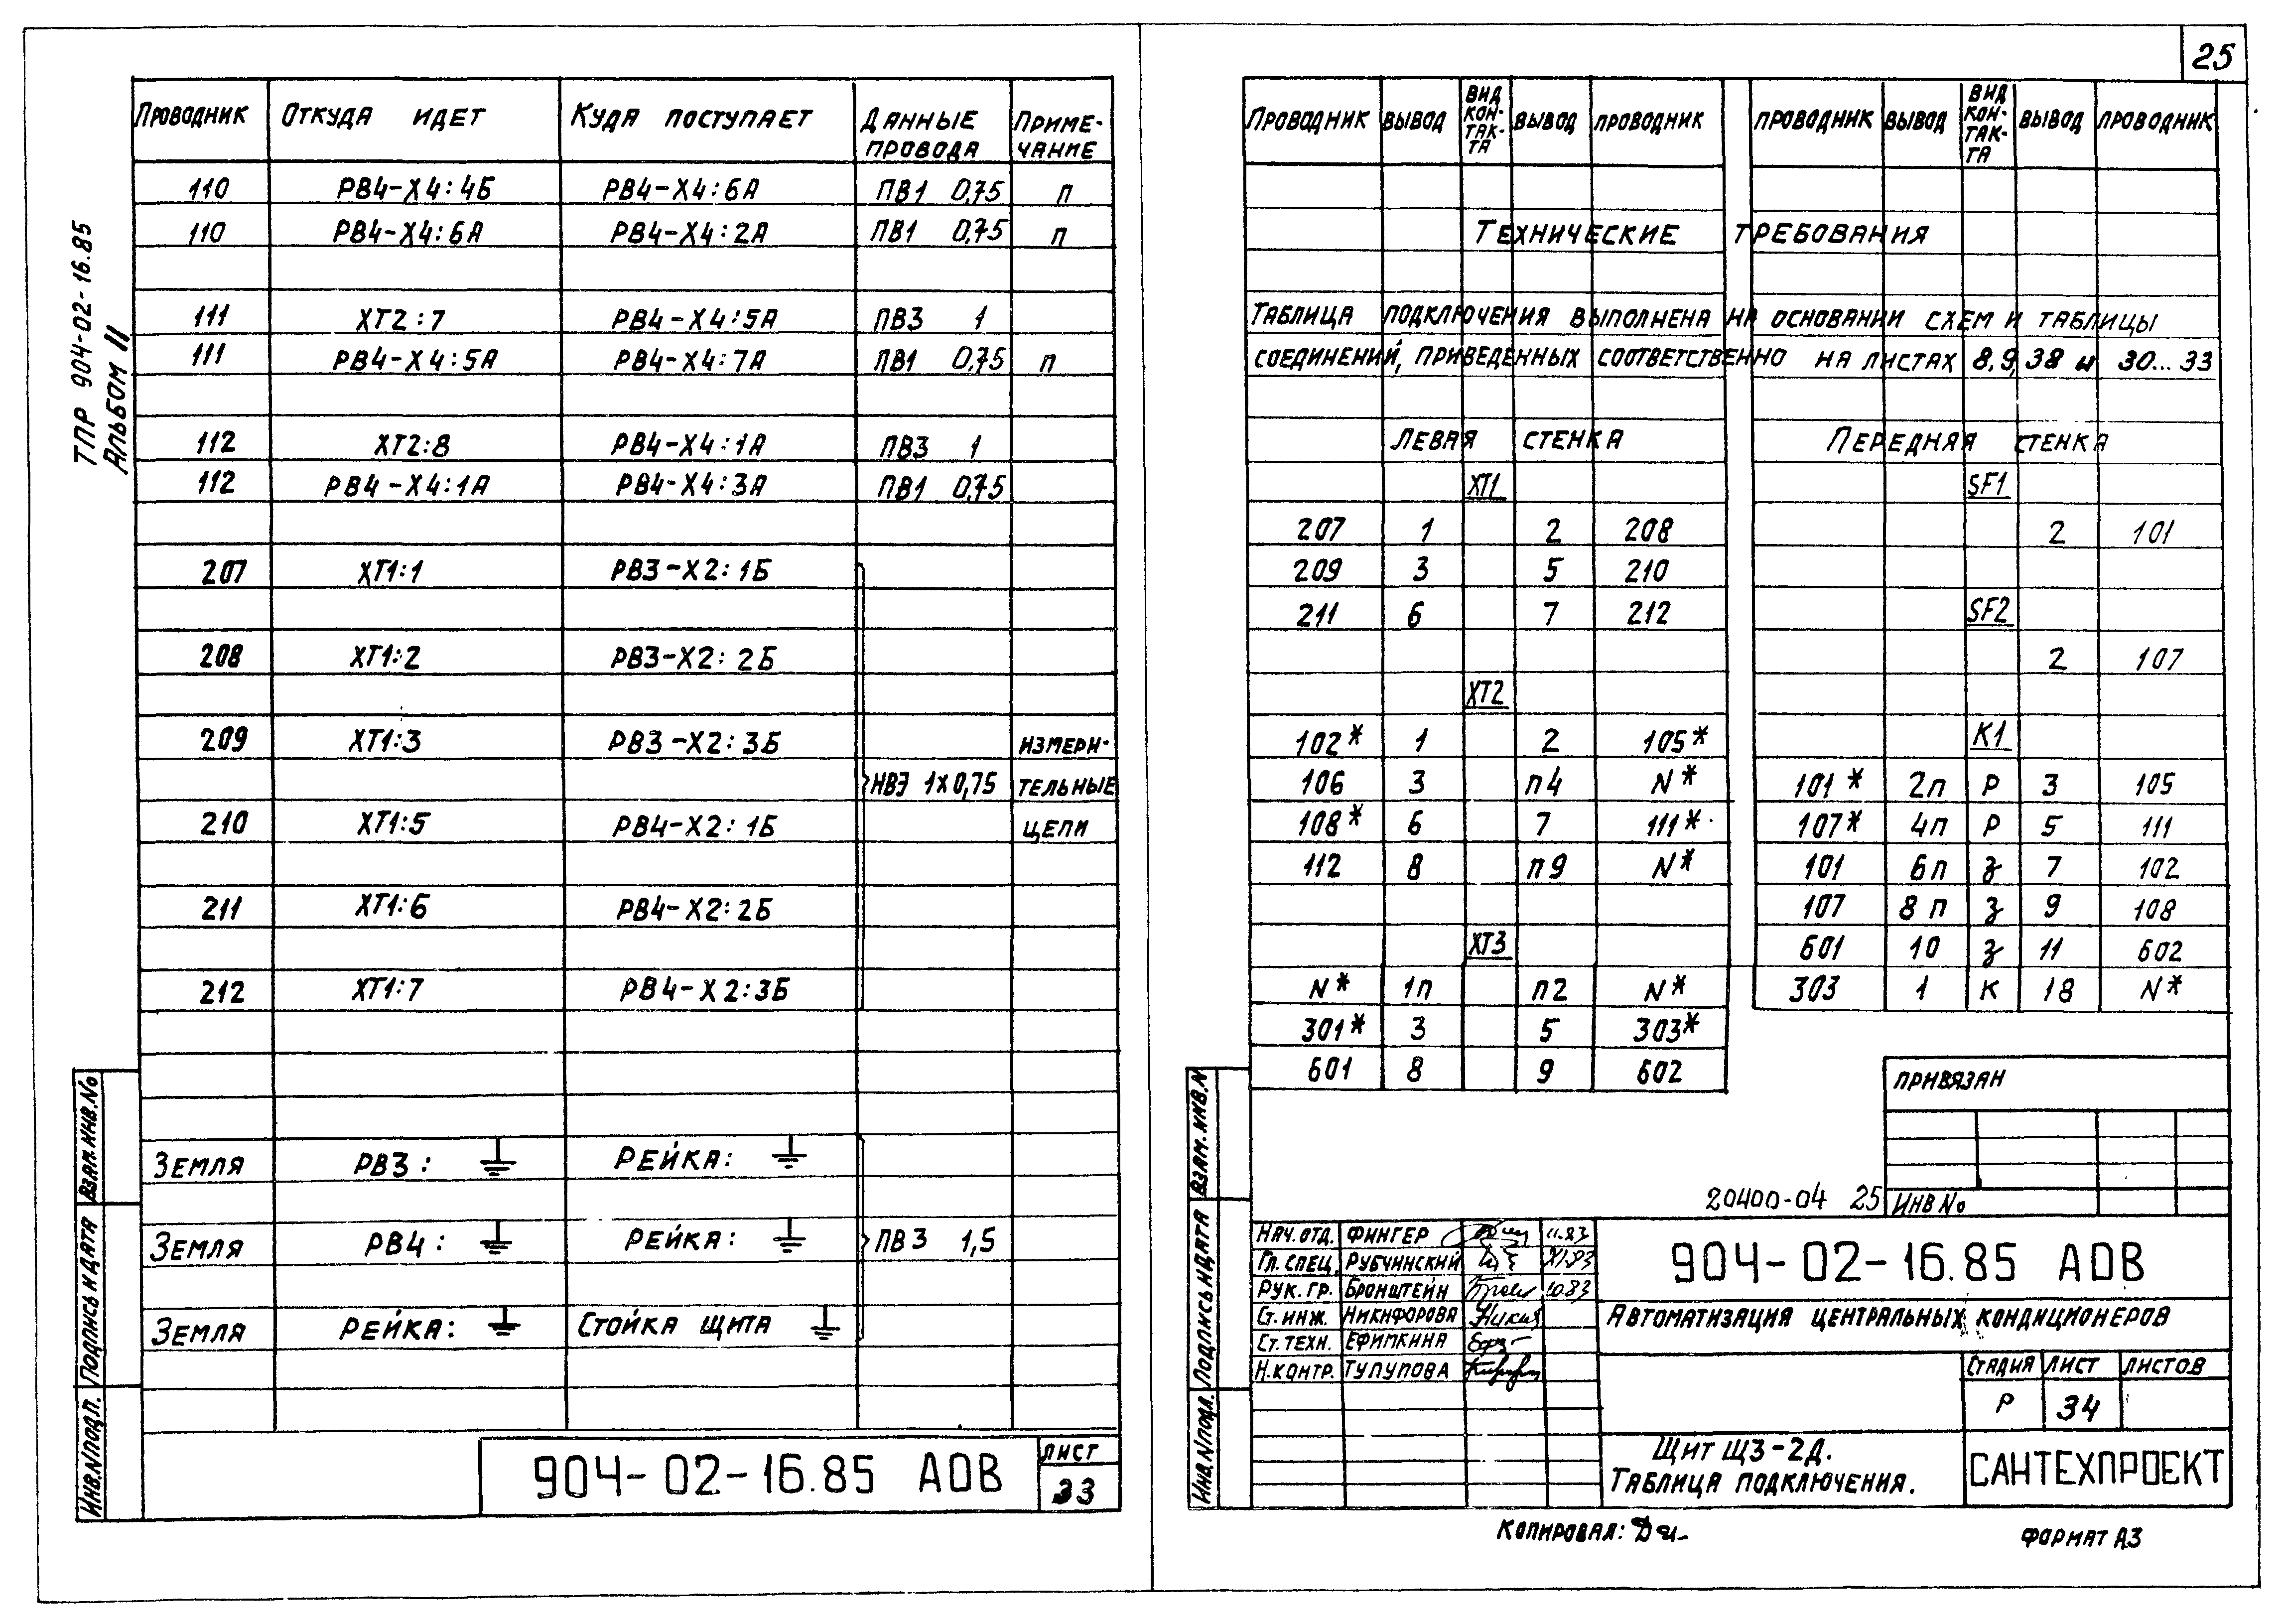 25
ТПР 904-02-16.85
Альбом II
Проводник Откуда идет Куда поступает Данные провода Приме-чание
110 РВ4-Х4:4Б РВ4-Х4:6А ПВ1 0,75 п
110 РВ4-Х4:6А РВ4-Х4:2А ПВ1 0,75 п
111 ХТ2:7 РВ4-Х4:5А ПВ3 1
111 РВ4-Х4:5А РВ4-Х4:7А ПВ1 0,75 п
112 ХТ2:8 РВ4-Х4:1А ПВ3 1
112 РВ4-Х4:1А РВ4-Х4:3А ПВ1 0,75
207 ХТ1:1 РВ3-Х2:1Б
208 ХТ1:2 РВ3-Х2:2Б
209 ХТ1:3 РВ3-Х2:3Б измери-
НВЭ 1х0,75 тельные
210 ХТ1:5 РВ4-Х2:1Б цепи
211 ХТ1:6 РВ4-Х2:2Б
212 ХТ1:7 РВ4-Х2:3Б
Земля РВ3: Рейка:
Земля РВ4: Рейка: ПВ3 1,5
Земля Рейка: Стойка щита
Взам.инв.№
Подпись и дата
Инв.№подл.
904-02-16.85 АОВ
Лист
33
Проводник Вывод Вид кон-так-та Вывод Проводник Проводник Вывод Вид кон-так-та Вывод Проводник
Технические требования
Таблица подключения выполнена на основании схем и таблицы
соединений, приведенных соответственно на листах 8,9,38 и 30...33
Левая стенка Передняя стенка
ХТ1 SF1
207 1 2 208 2 101
209 3 5 210
211 6 7 212 SF2
2 107
ХТ2
102* 1 2 105* К1
106 3 п4 N* 101* 2п Р 3 105
108* 6 7 111* 107* 4п Р 5 111
112 8 п9 N* 101 6п з 7 102
107 8п з 9 108
ХТ3 601 10 з 11 602
N* 1п п2 N* 303 1 К 18 N*
301* 3 5 303*
601 8 9 602
Привязан
20400-04 25
Инв №
Взам.инв.N
Подпись и дата
Инв.Nподл.
Нач.отд. Фингер 11.83
Гл.спец. Рубчинский XI.83
Рук.гр. Бронштейн 10.83
Ст.инж. Никифорова
Ст.техн. Ефимкина
Н.контр. Тулупова
904-02-16.85 АОВ
Автоматизация центральных кондиционеров
Стадия Лист Листов
Р 34
Щит Щ3-2Д.
Таблица подключения.
САНТЕХПРОЕКТ
Копировал:
Формат А3